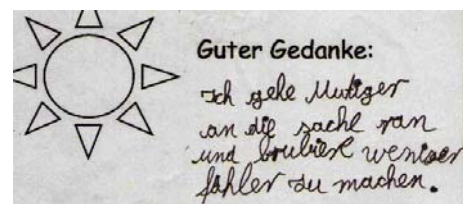 Guter Gedanke:
Ich gehe Mutiger
an die sache ran
und brubiere weniser
fähler zu machen.